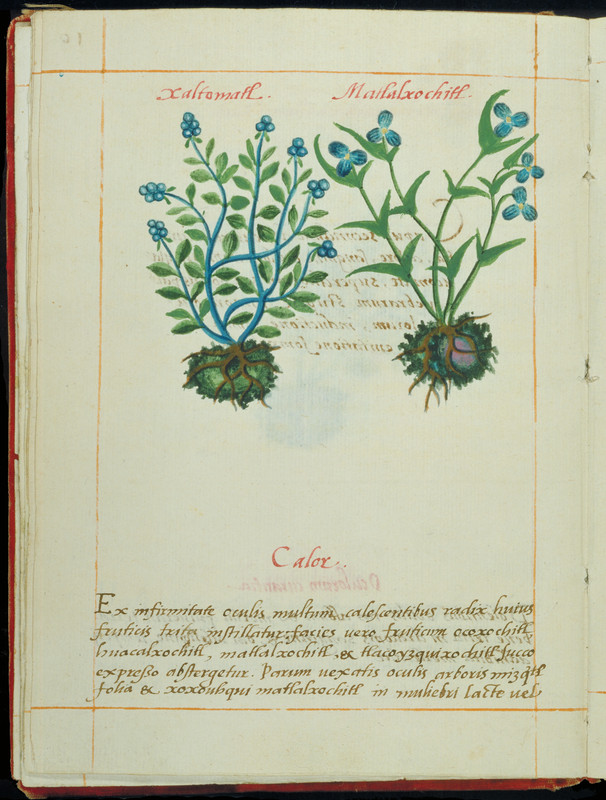 Xaltomatl.
Matlalxochitl.
Calor.
Ex infirmitate oculis multum calescentibus radix huius
fruticis trita instillatur: facies vero fruticum ocoxochitl
huacalxochitl, matlalxochitl, & tlacoyzquixochitl succo
expresso abstergetur. Parum vexatis oculis arboris mizq̃tl
folia & xoxouhqui matlalxochitl in muliebri lacte vel